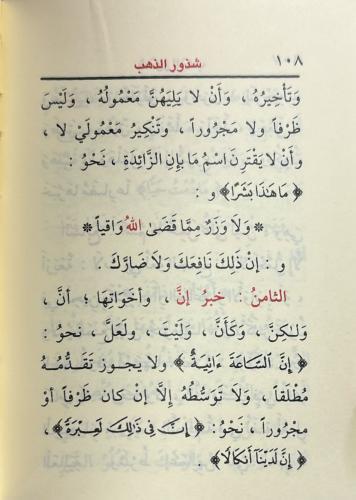 ١٠٨ شذور الذهب
وَتَأْخِيرُهُ ، وَأَنْ لا يَلِيَهُنَّ مَعْمُولُهُ ، وَلَيْسَ
ظَرْفاً ولا مَجْرُوراً ، وَتَنْكِيرُ مَعْمُولَيْ لا ،
وأَنْ لا يَقْتَرِنَ اسْمُ مَا بِإِنِ الزَّائِدَةِ ، نَحْوُ :
﴿مَا هَٰذَا بَشَرًا﴾ و :
* وَلا وَزَرٌ مِمَّا قَضَىٰ اللهُ وَاقِياً *
و : إِنْ ذَلِكَ نَافِعَكَ وَلا ضَارَّكَ .
الثامنُ : خبرُ إنَّ ، وأخَوَاتِهَا ؛ أنَّ ،
وَلٰكِنَّ ، وَكَأَنَّ ، وَلَيْتَ ، ولَعَلَّ ، نحوُ :
﴿إِنَّ السَّاعَةَ ءَاتِيَةٌ﴾ ولا يجوز تَقَدُّمُهُ
مُطْلَقاً ، وَلا تَوَسُّطُهُ إلاَّ إنْ كان ظَرْفاً أوْ
مجْرُوراً ، نَحْوُ : ﴿إِنَّ فِي ذَٰلِكَ لَعِبْرَةً﴾ ،
﴿إِنَّ لَدَيْنَآ أَنكَالًا﴾ .